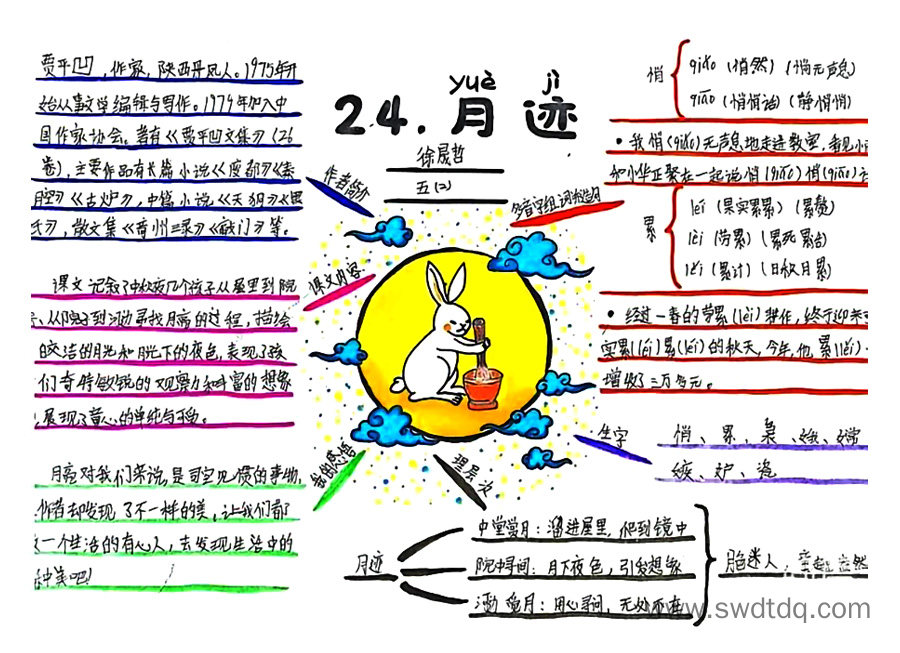 yuè jì
24.月迹
徐晟哲
五(2)
作者简介
贾平凹,作家,陕西丹凤人。1975年开
始从事文学编辑与写作。1979年加入中
国作家协会。著有《贾平凹文集》(26
卷),主要作品有长篇小说《废都》《秦
腔》《古炉》,中篇小说《天狗》《黑
氏》,散文集《商州三录》《敲门》等。
课文内容
课文记叙了中秋夜几个孩子从屋里到院
从院子到河边寻找月亮的过程,描绘
皎洁的月光和月光下的夜色,表现了孩
们奇特敏锐的观察力和丰富的想象
展现了童心的单纯与
我的感悟
月亮对我们来说,是司空见惯的事物,
作者却发现了不一样的美,让我们都
一个生活的有心人,去发现生活中的
种美吧!
多音字组词和造句
悄
qiǎo(悄然)(悄无声息)
qiāo(悄悄话)(静悄悄)
•我悄(qiǎo)无声息地走进教室,看见小
和小华正聚在一起说悄(qiāo)悄(qiāo)
累
léi(果实累累)(累赘)
lèi(劳累)(累死累活)
lěi(累计)(日积月累)
•经过一春的劳累(lèi)耕作,终于迎来
实累(léi)累(léi)的秋天,今年,他累(lěi)
增收了三万多元。
生字
悄、累、袅、娥、嫦
嫉、妒、瓷
理层次
月迹
中堂赏月:溜进屋里,爬到镜中
院中寻月:月下夜色,引发想象
河边寻月:用心寻问,无处不在
月色迷人,
www.swdtdq.com